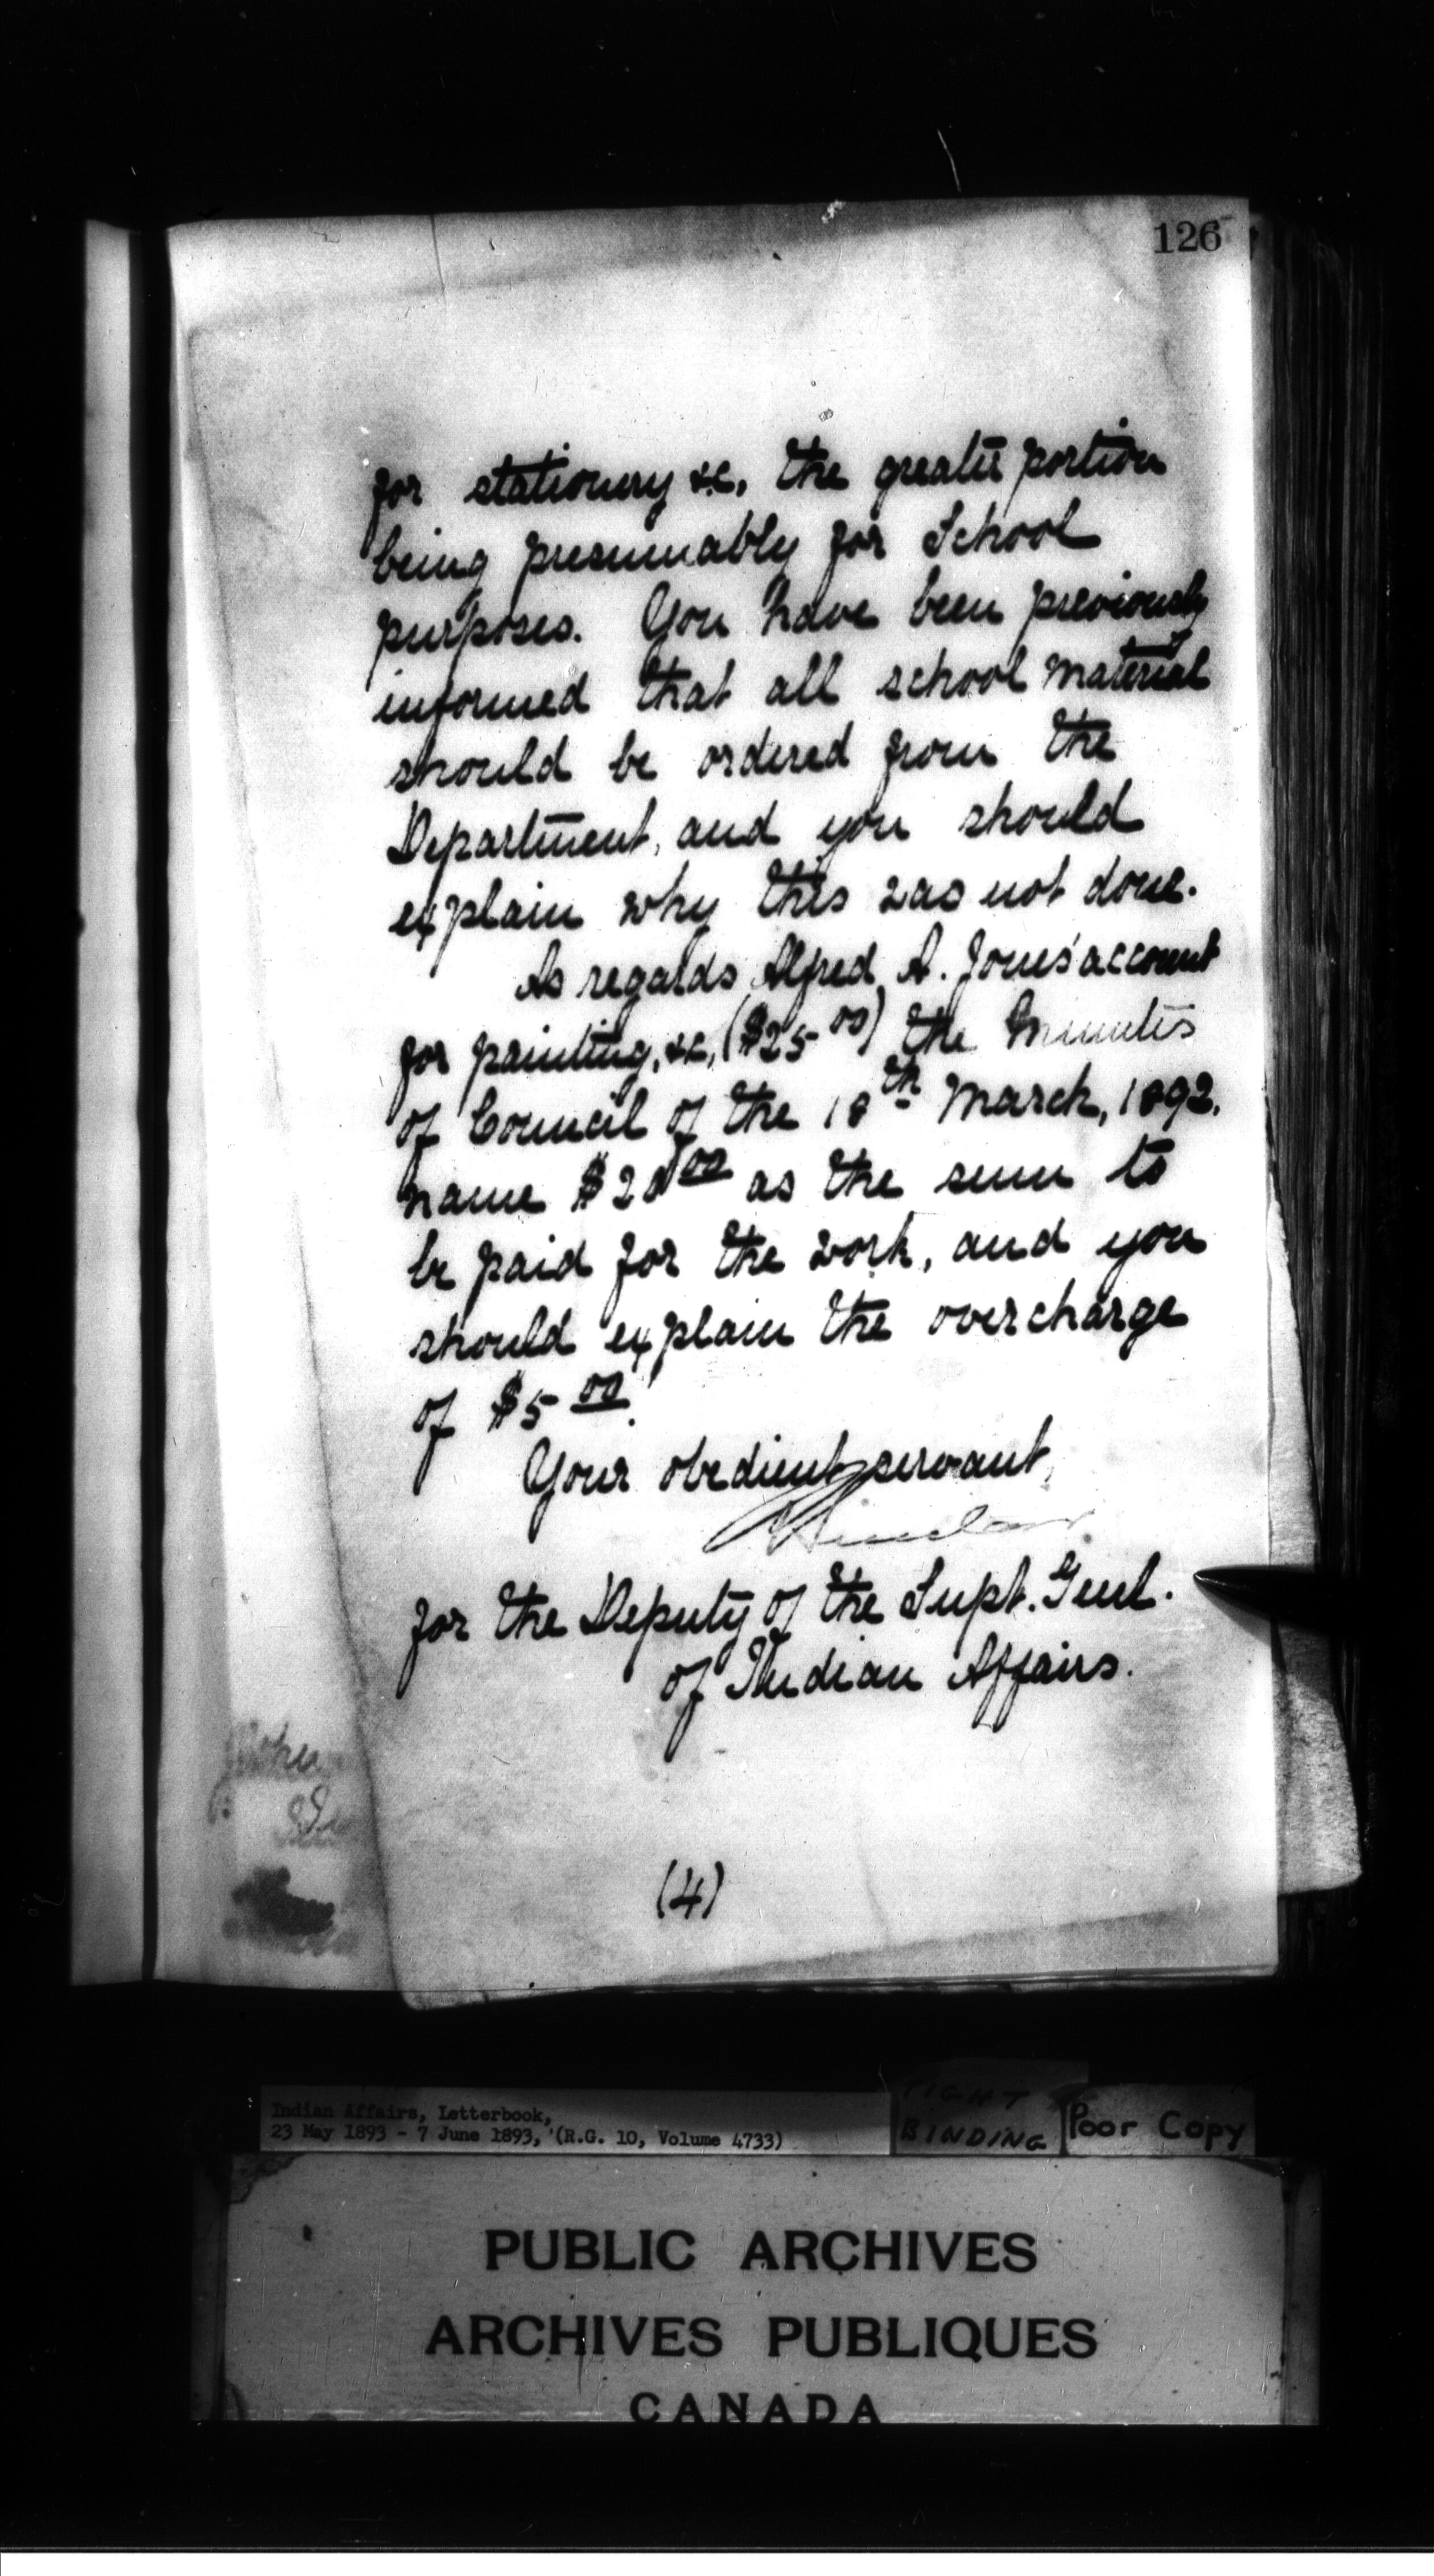 126
for stationery &c, the greater portion
being presumably for School
purposes. You have been previously
informed that all school material
should be ordered from the
Department, and you should
explain why this was not done.
As regards Alfred A. Jones' account
for painting, &c, ($25 00) the Minutes
of Council of the 18th March, 1892.
name $20 00 as the sum to
be paid for the work, and you
should explain the overcharge
of $5 00.
Your obedient servant,
for the Deputy of the Supt. Genl.
of Indian Affairs.
(4)
Indian Affairs, Letterbook,
23 May 1893 - 7 June 1893, (R.G. 10, Volume 4733)
TIGHT
BINDING
Poor Copy
PUBLIC ARCHIVES
ARCHIVES PUBLIQUES
CANADA